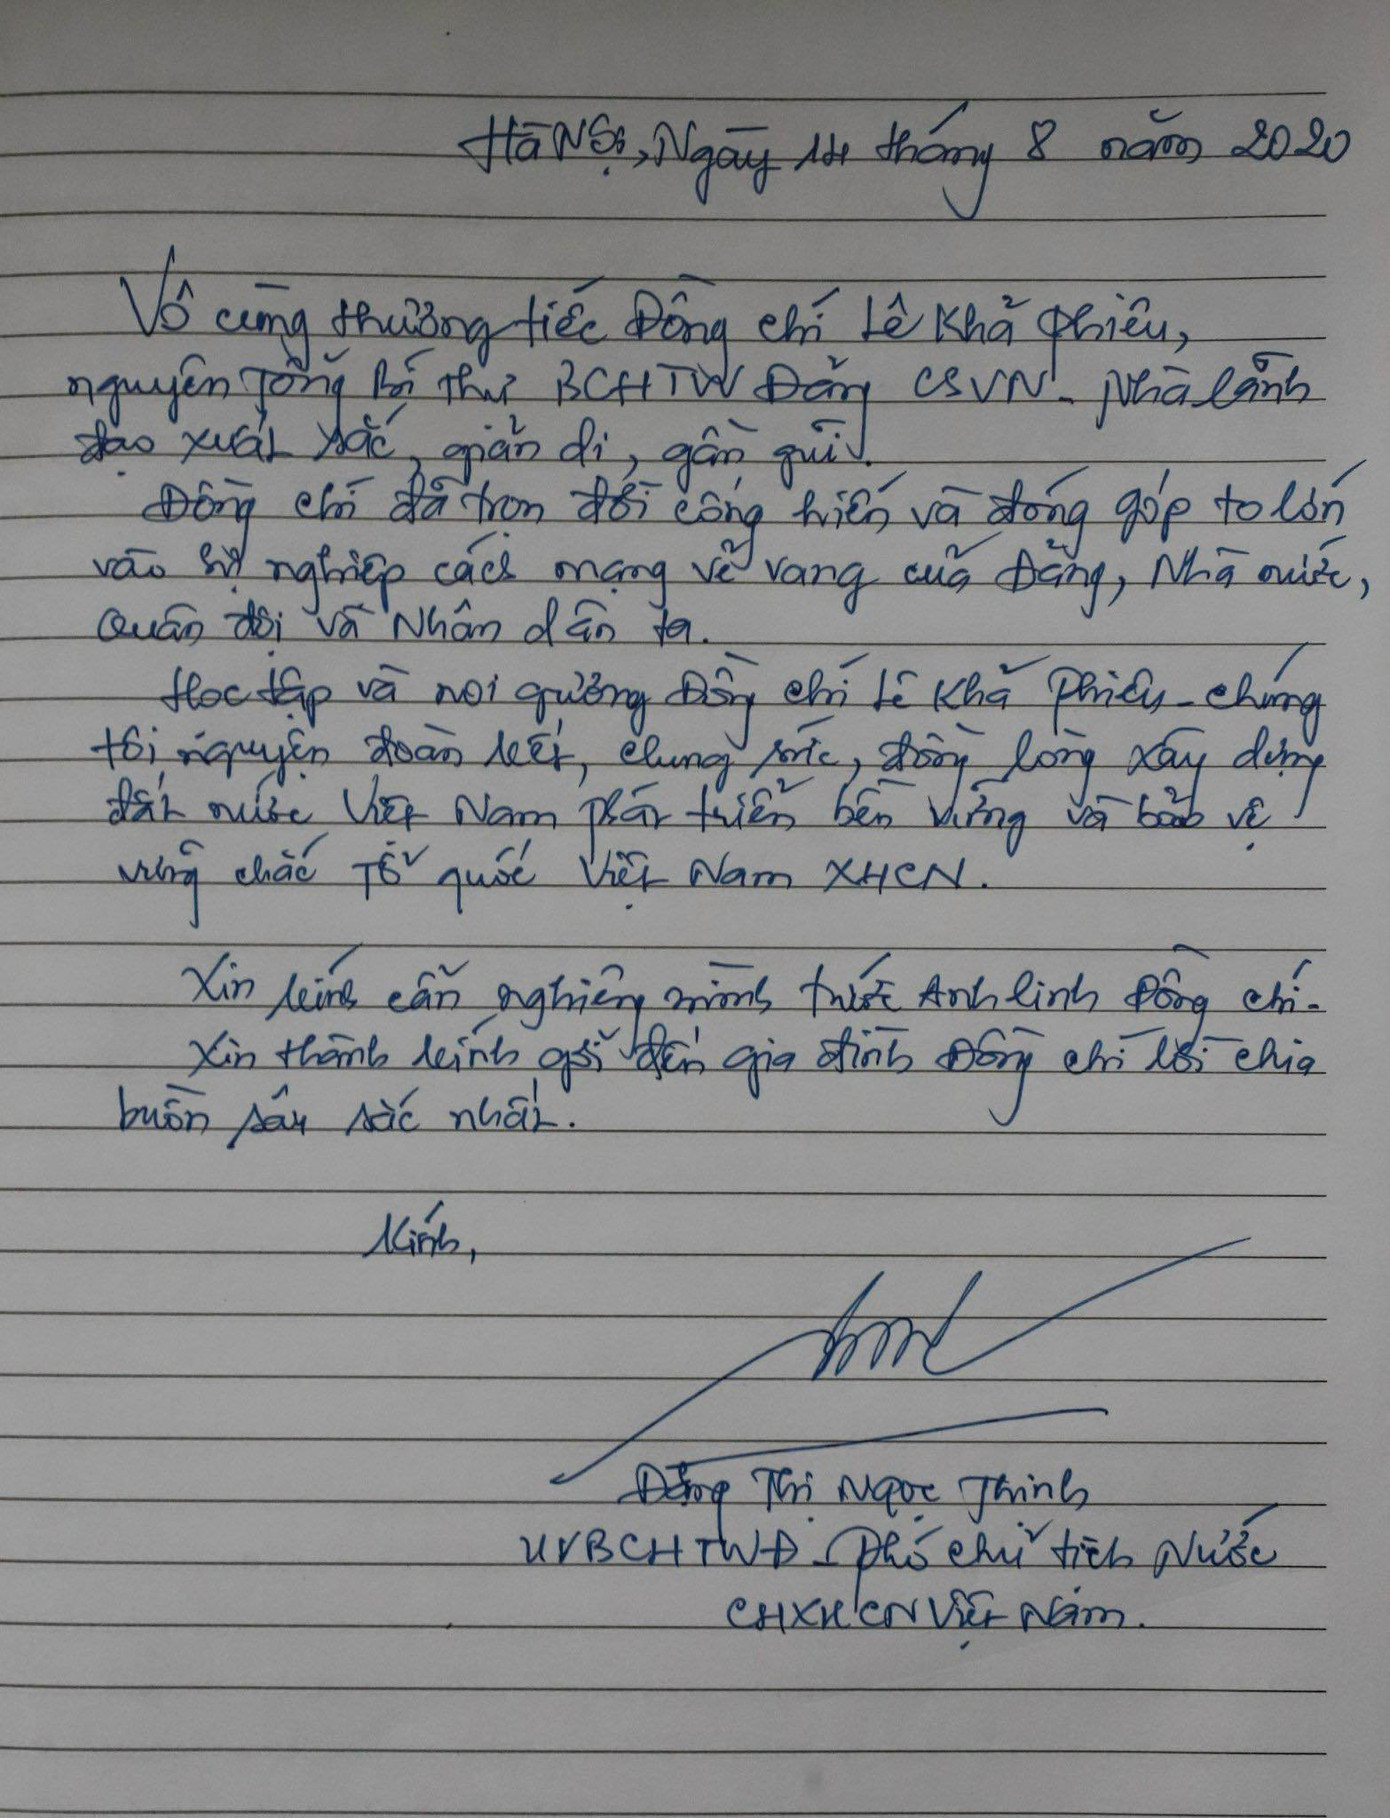 Hà Nội, Ngày 14 tháng 8 năm 2020
Vô cùng thương tiếc Đồng chí Lê Khả Phiêu,
nguyên Tổng Bí thư BCHTW Đảng CSVN - Nhà lãnh
đạo xuất sắc, giản dị, gần gũi.
Đồng chí đã trọn đời cống hiến và đóng góp to lớn
vào sự nghiệp cách mạng vẻ vang của Đảng, Nhà nước,
Quân đội và Nhân dân ta.
Học tập và noi gương Đồng chí Lê Khả Phiêu - chúng
tôi nguyện đoàn kết, chung sức, đồng lòng xây dựng
đất nước Việt Nam phát triển bền vững và bảo vệ
vững chắc Tổ quốc Việt Nam XHCN.
Xin kính cẩn nghiêng mình trước Anh linh Đồng chí.
Xin thành kính gởi đến gia đình Đồng chí lời chia
buồn sâu sắc nhất.
Kính,
Đặng Thị Ngọc Thịnh
UVBCHTWĐ - Phó chủ tịch Nước
CHXHCN Việt Nam.